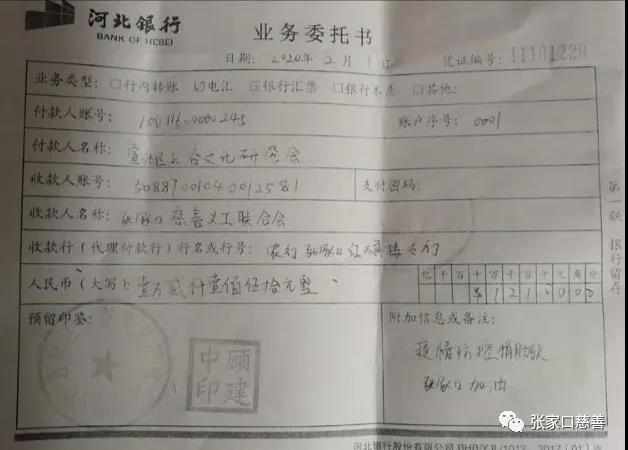 河北银行
BANK OF HEBEI
业务委托书
日期: 2020年2月1日
凭证编号: 11101220
业务类型: □行内转账 ☑电汇 □银行汇票 □银行本票 □其他:
付款人账号: 100116000245
账户序号: 0001
付款人名称: 宣化区上谷文化研究会
收款人账号: 50887001040012581
支付密码:
收款人名称: 张家口慈善义工联合会
收款行(代理付款行)行名或行号: 农行张家口红旗楼支行
人民币(大写): 壹万贰仟壹佰伍拾元整
亿千百十万千百十元角分
¥1215000
预留印鉴:
顾建中印
附加信息或备注:
疫情防控捐助款
张家口加油
第一联 银行留存
张家口慈善
河北银行股份有限公司